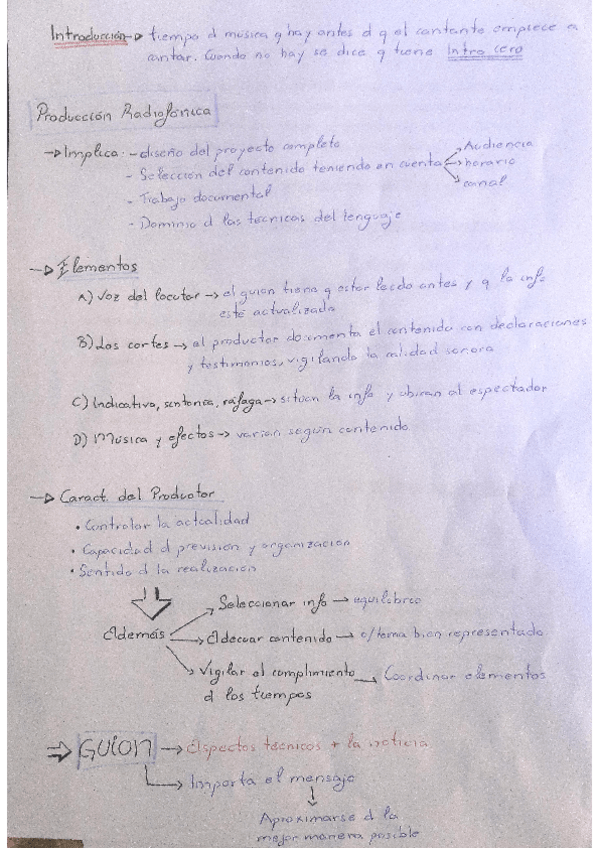 Introducción → tiempo d música q hay antes d q el cantante empiece a
cantar. Cuando no hay se dice q tiene Intro cero
Producción Radiofónica
→ Implica: - diseño del proyecto completo
- Selección del contenido teniendo en cuenta → Audiencia
→ horario
→ canal
- Trabajo documental
- Dominio d las técnicas del lenguaje
→ Elementos
A) Voz del locutor → el guion tiene q estar leido antes y q la info
esté actualizada
B) Los cortes → el productor documenta el contenido con declaraciones
y testimonios, vigilando la calidad sonora
C) Indicativo, sintonía, ráfaga → situan la info y ubican al espectador
D) Música y efectos → varian según contenido
→ Caract. del Productor
• Controlar la actualidad
• Capacidad d previsión y organización
• Sentido d la realización
Además → Seleccionar info → equilibrio
→ Adecuar contenido → c/tema bien representado
→ Vigilar el cumplimiento → Coordinar elementos
d los tiempos
⇒ GUION → Aspectos técnicos + la noticia
→ Importa el mensaje
↓
Aproximarse d la
mejor manera posible